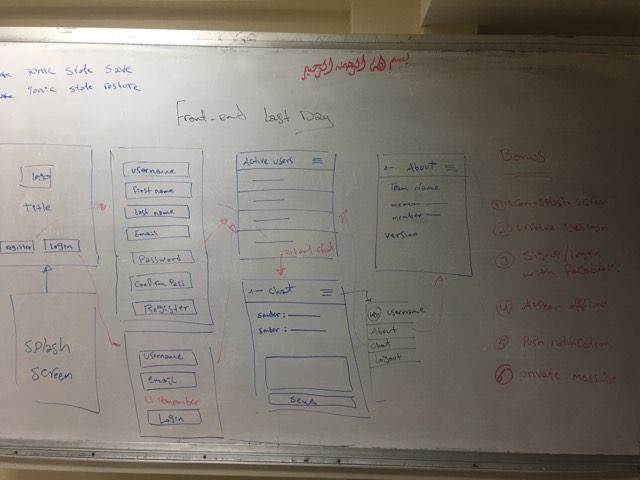 ionic state save
ionic state restore
بسم الله الرحمن الرحيم
Front-end Last Day
logo
Title
register
Login
Splash
Screen
Username
First name
Last name
Email
Password
Confirm Pass
Register
Username
email
remember
Login
Active users
start chat
← Chat
sender:
sender:
Send
← About
Team name
member
member
version
username
About
Chat
Logout
Bonus
① icon-splash screen
② unique design
③ Signup/login
with facebook
④
offline
⑤ Push notification
⑥ private message